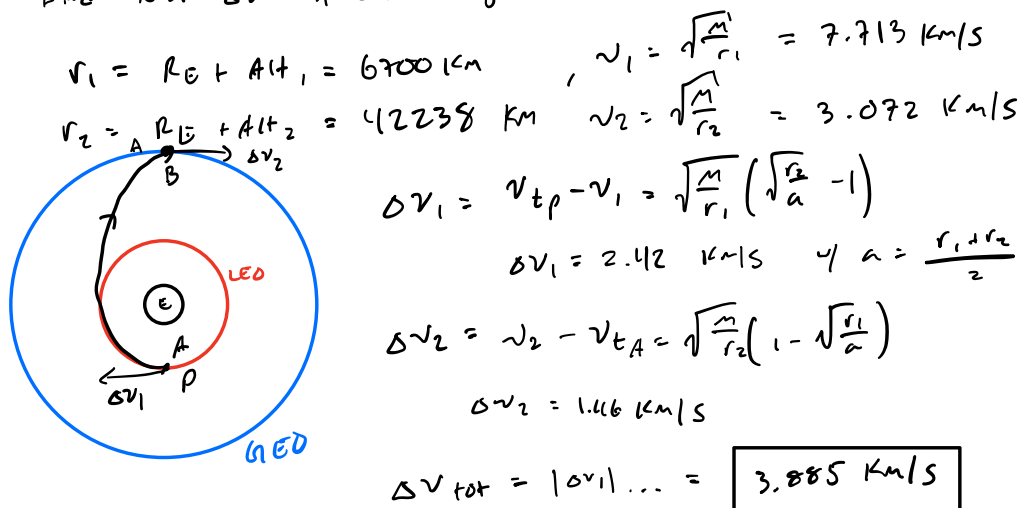 r₁ = R_E + Alt₁ = 6700 Km , v₁ = √(μ/r₁) = 7.713 Km/s
r₂ = R_E + Alt₂ = 42238 Km v₂ = √(μ/r₂) = 3.072 Km/s
A
B
Δv₂
Δv₁ = v_tp - v₁ = √(μ/r₁) (√(r₂/a) - 1)
LEO
E
Δv₁ = 2.42 Km/s w/ a = (r₁+r₂)/2
A
P
Δv₁
Δv₂ = v₂ - v_tA = √(μ/r₂) (1 - √(r₁/a))
Δv₂ = 1.46 Km/s
GEO
Δv_tot = |Δv₁| ... = 3.885 Km/s